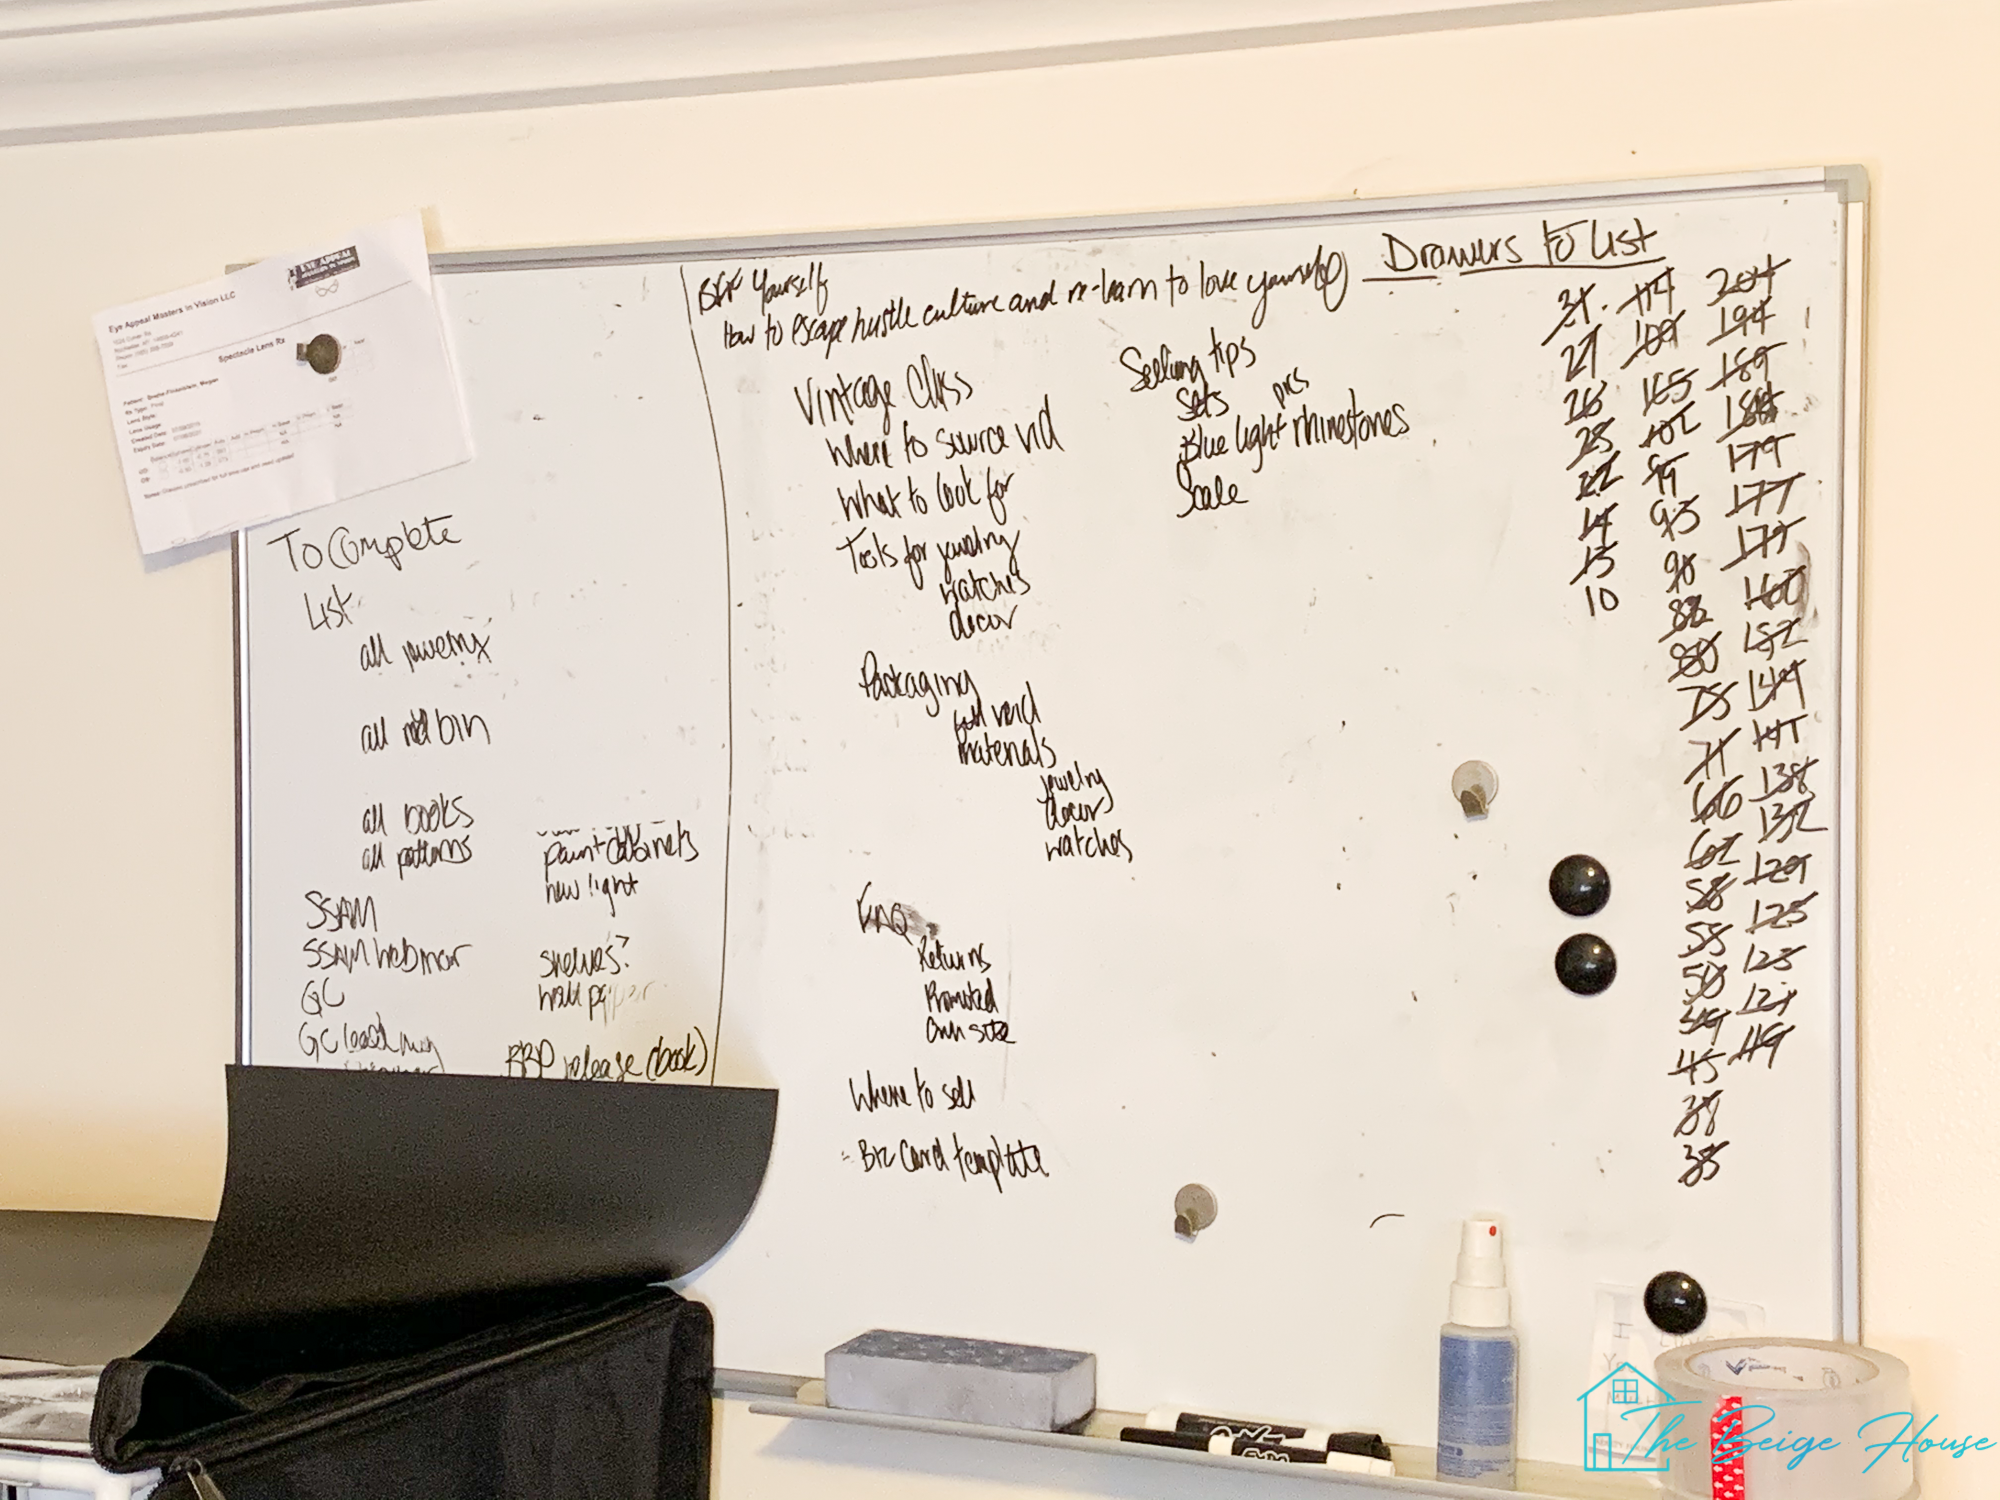 EYE APPEAL
Eye Appeal Masters in Vision LLC
Spectacle Lens Rx
To Complete
List
all jewelry
all bin
all books
all patterns
SSAM
SSAM webinar
GC
GC
paint cabinets
new light
shelves?
wall paper
BBP release (book)
Yourself
How to escape hustle culture and re-learn to love yourself
Vintage Class
Where to source
What to look for
Tools for jewelry
watches
decor
Packaging
materials
jewelry
decor
watches
FAQ
Returns
Promoted
Own site
Where to sell
- Biz Card template
Selling tips
Sets pics
Blue light rhinestones
Scale
Drawers to List
31
27
26
25
22
14
15
10
114
109
105
102
99
93
90
88
80
75
71
66
62
58
55
50
49
45
38
35
204
194
189
188
179
177
175
160
152
149
141
138
132
129
125
123
121
119
I
The Beige House